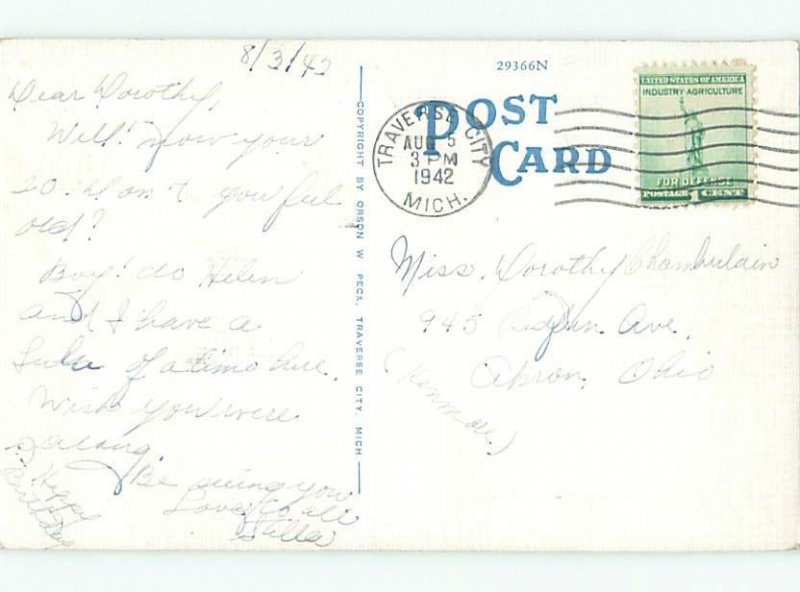 8/3/42
Dear Dorothy,
Well! now your
20. Don't you feel
old?
Boy! do Helen
and I have a
Lulu of a time here.
Wish you were
along.
Be seeing you
Love to all
Stella
Happy
Birthday
COPYRIGHT BY ORSON W. PECK, TRAVERSE CITY, MICH
29366N
POST
CARD
TRAVERSE CITY
AUG 5
3 PM
1942
MICH.
UNITED STATES OF AMERICA
INDUSTRY AGRICULTURE
FOR DEFENSE
POSTAGE 1 CENT
Miss. Dorothy Chamberlain
945 Ave.
Akron, Ohio
(Kenmore)